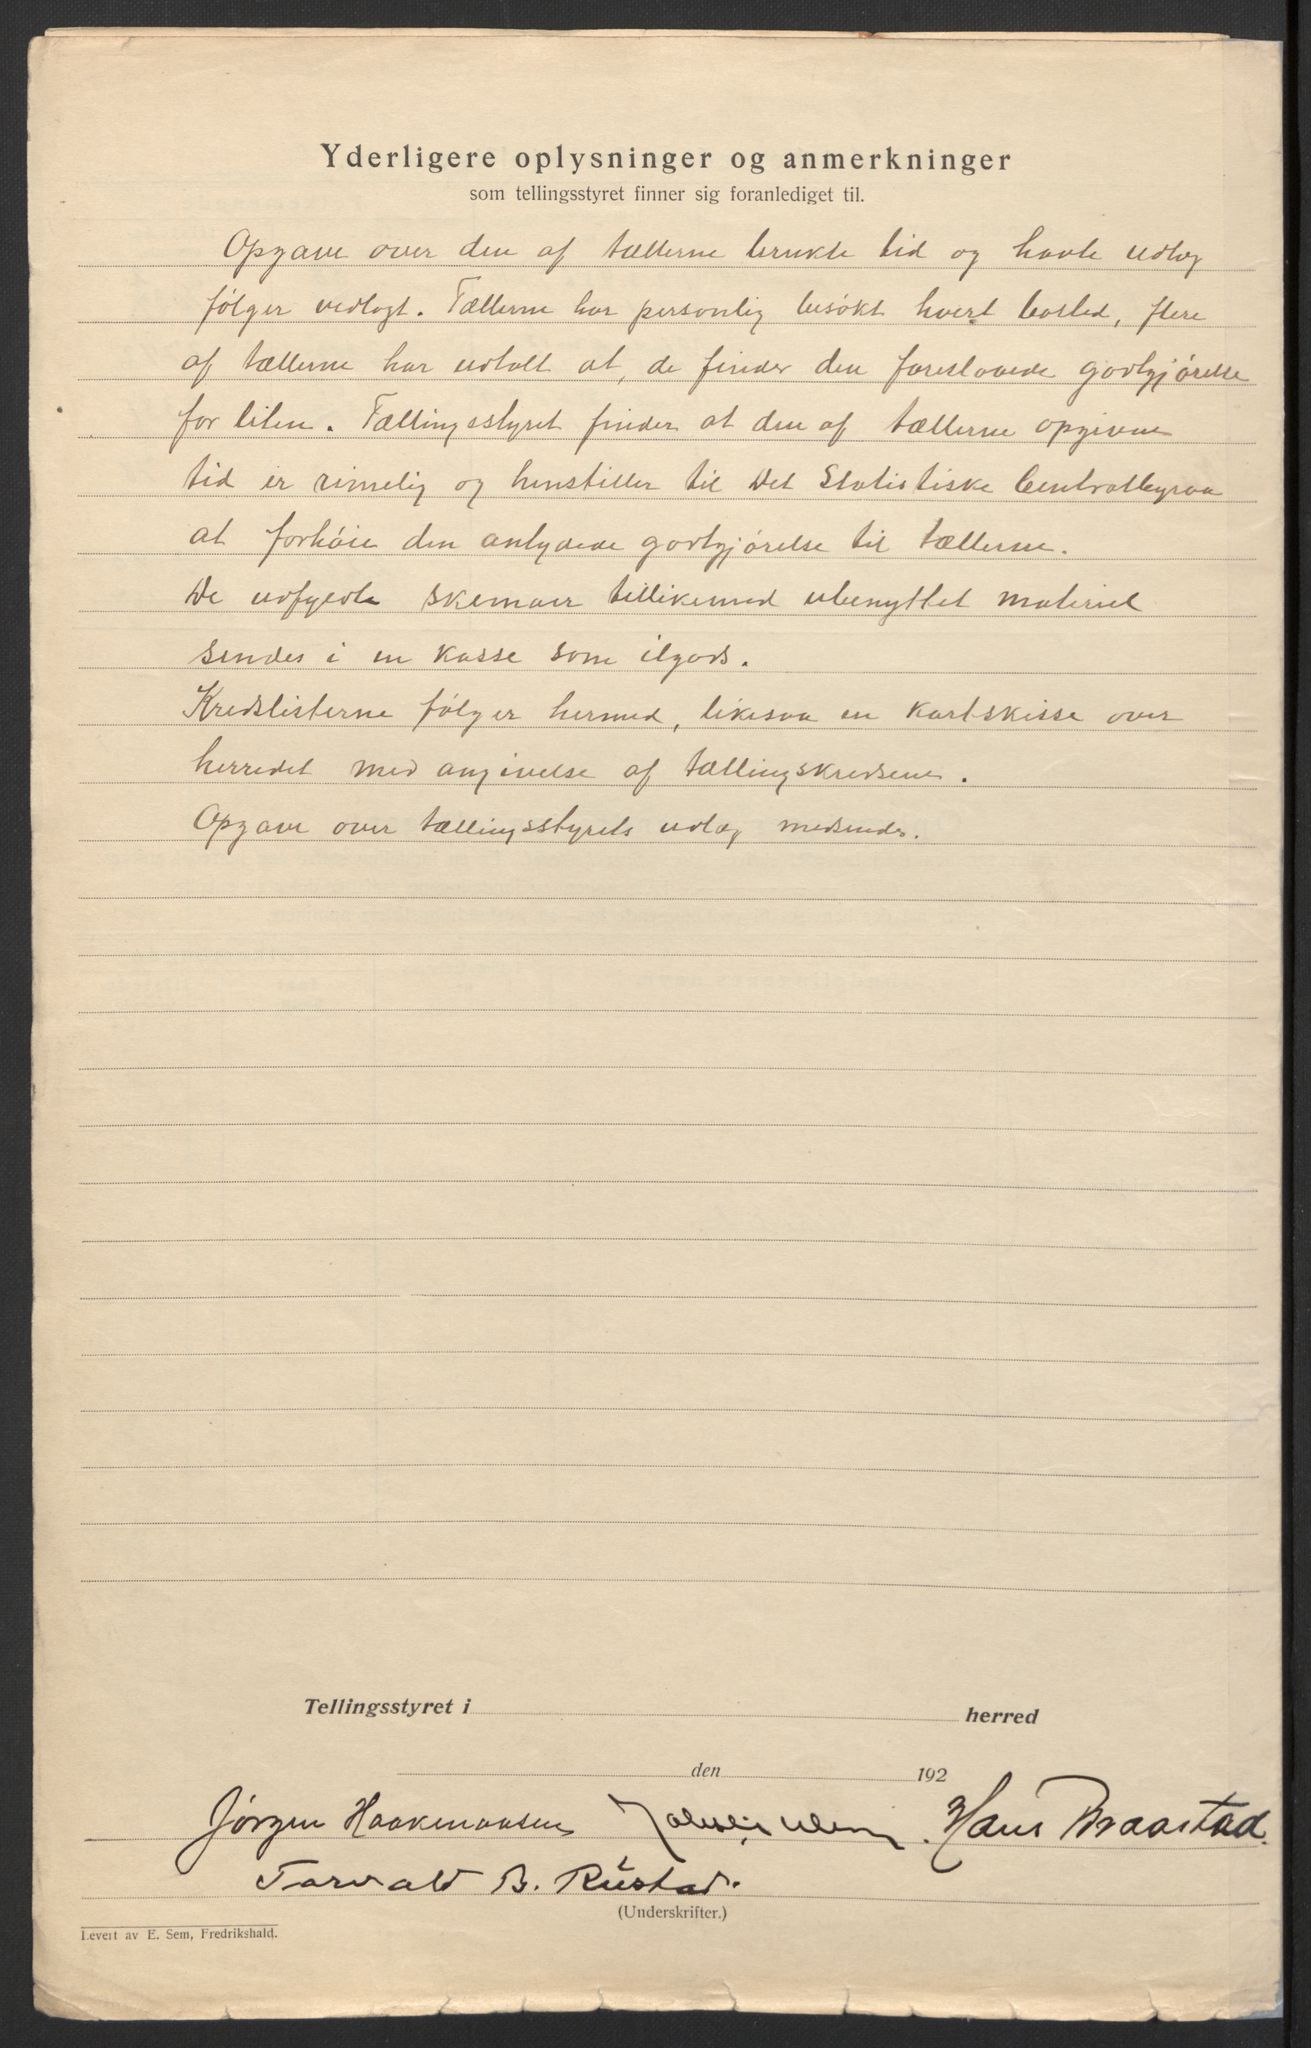 Yderligere oplysninger og anmerkninger
som tellingsstyret finner sig foranlediget til.
Opgave over den af tællerne brukte tid og havte udlæg
følger vedlagt. Tællerne har personlig besøkt hvert bosted, flere
af tællerne har udtalt at, de finder den foreslaaede godtgjørelse
for liten. Tællingsstyret finder at den af tællerne opgivne
tid er rimelig og henstiller til Det Statistiske Centralbyraa
at forhøie den antydede godtgjørelse til tællerne.
De udfyldte skemaer tillikemed ubenyttet materiel
sendes i en kasse som ilgods.
Kredslisterne følger hermed, likesaa en kartskisse over
herredet med angivelse af tællingskredsene.
Opgave over tællingsstyrets udlæg medsendes.
Tellingsstyret i herred
den 192
Jørgen Haakenaasen Hans Braastad.
Torvald B. Rustad.
(Underskrifter.)
Levert av E. Sem, Fredrikshald.